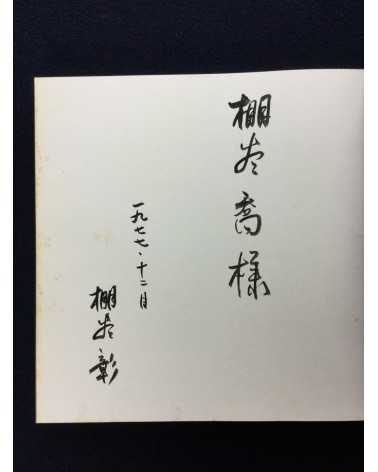 棚谷喬様
一九七七・十二月
棚谷彰